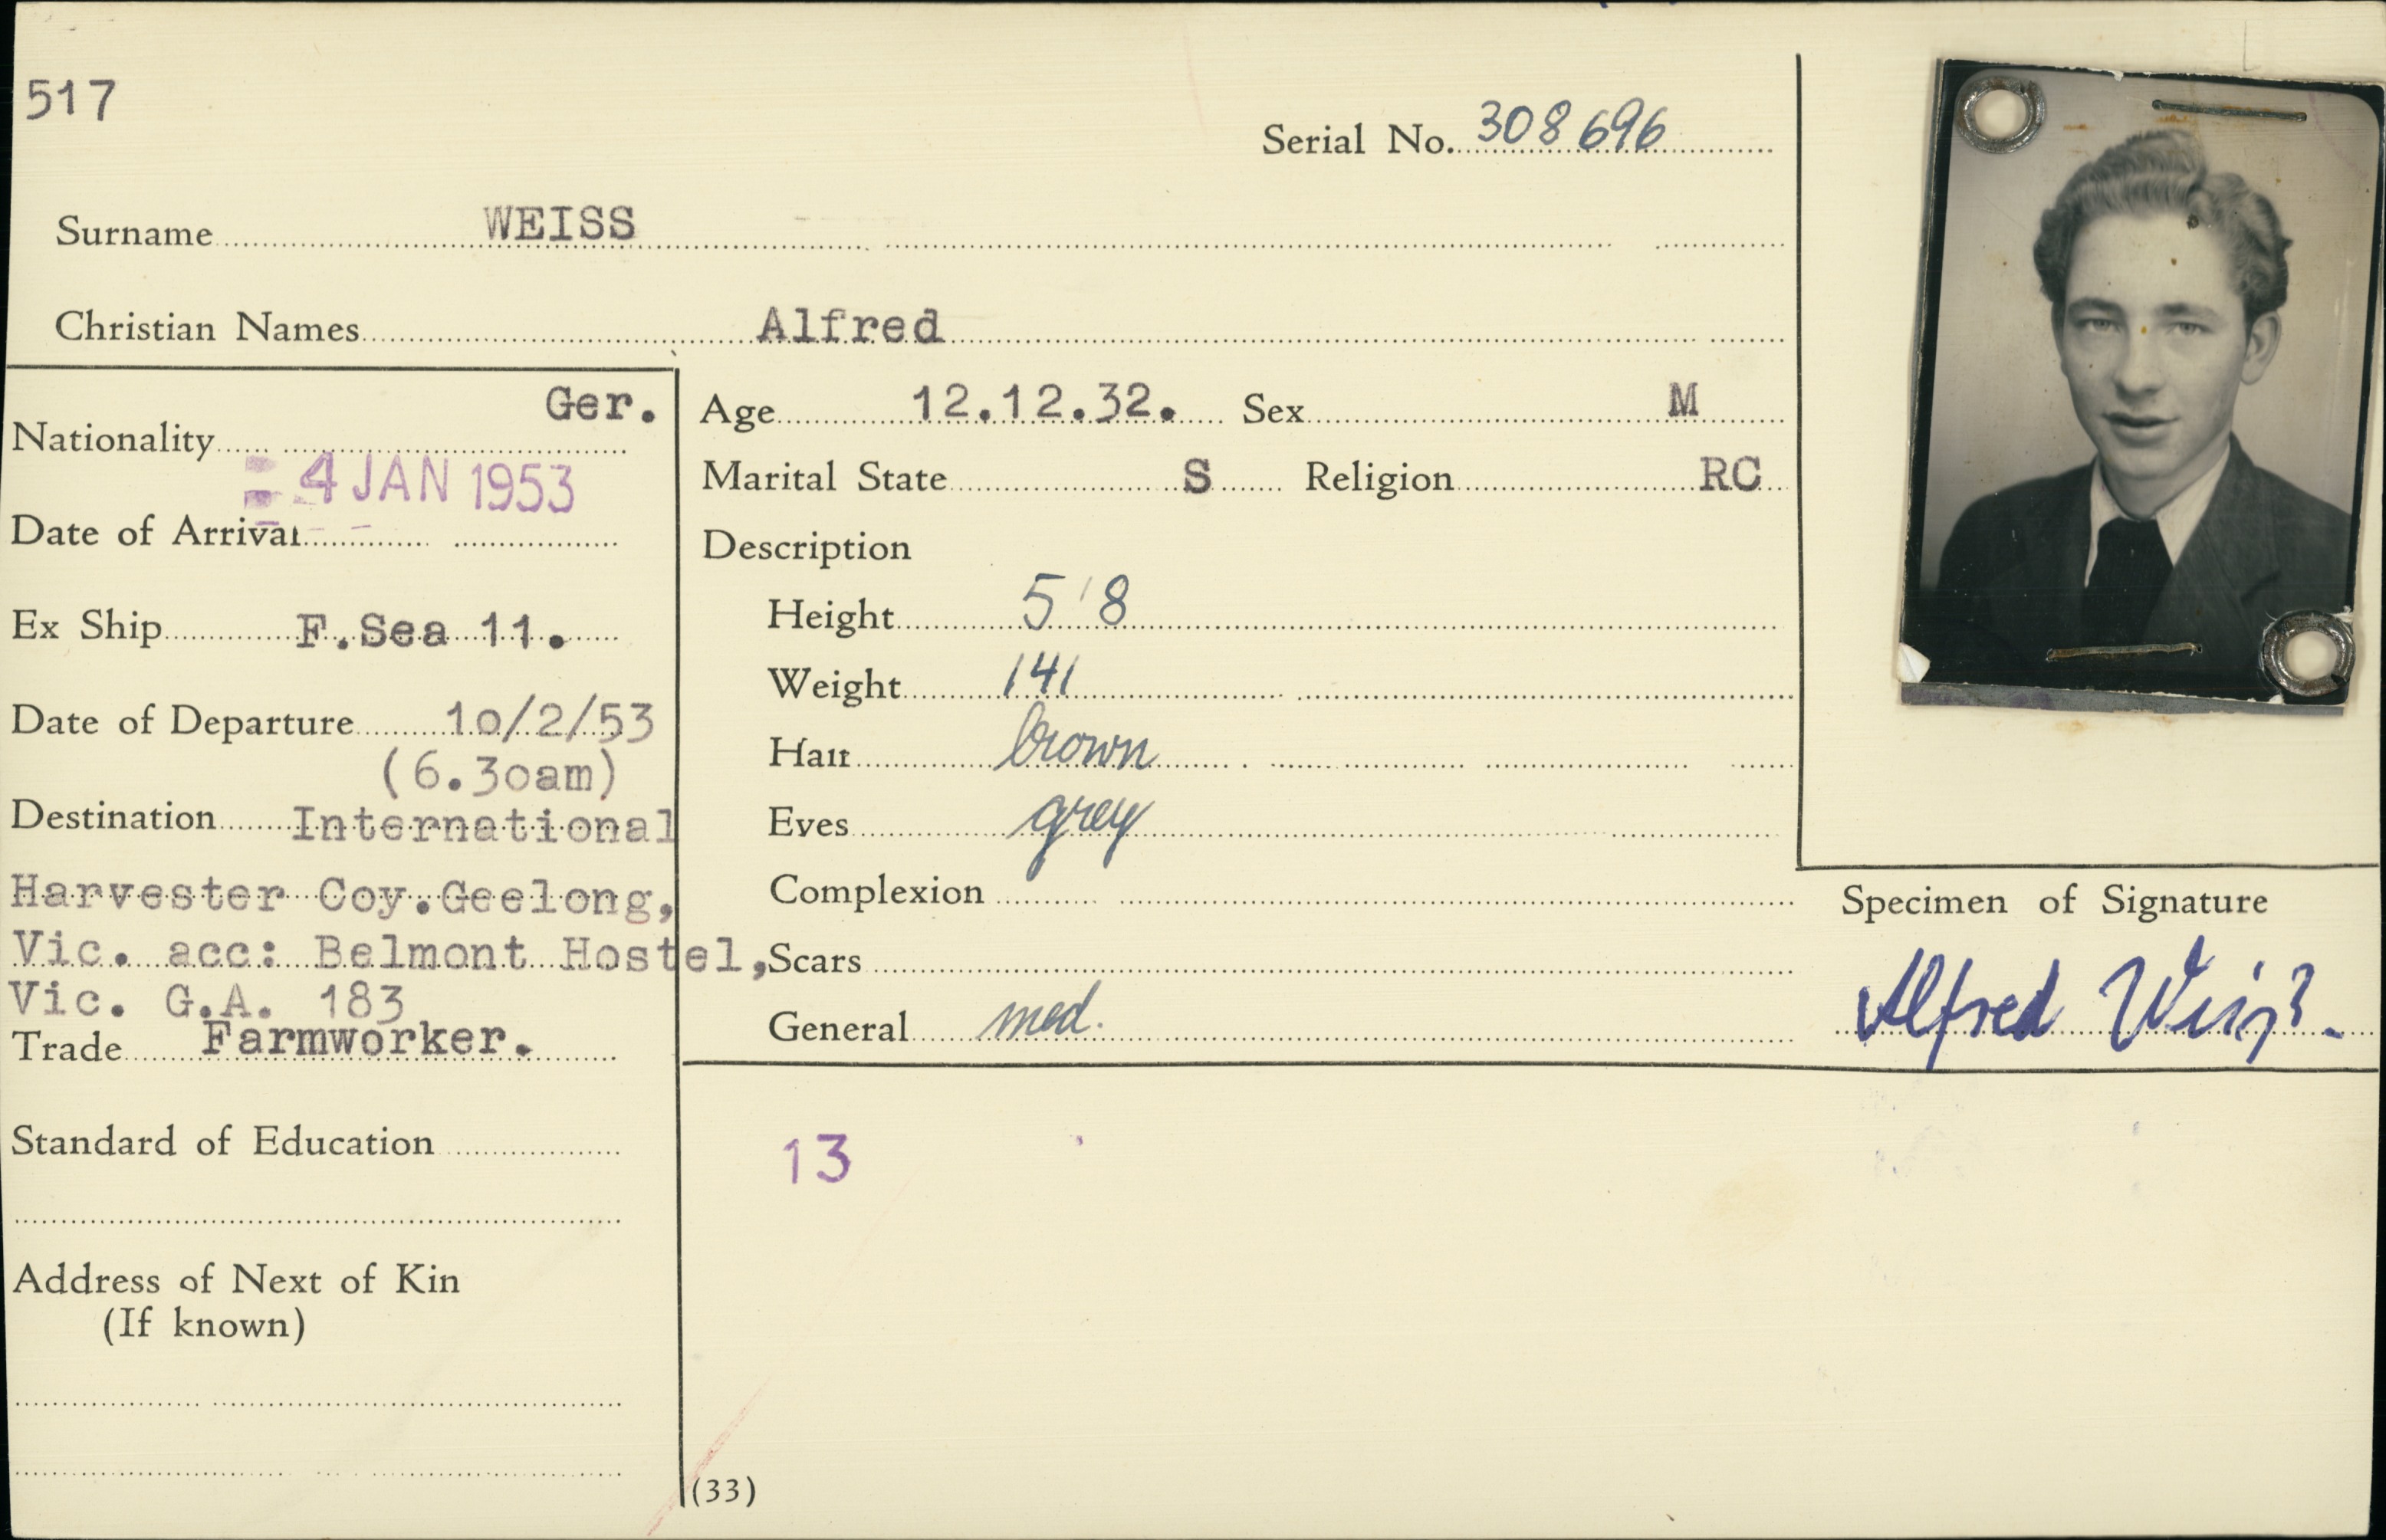 517
Serial No. 308696
Surname WEISS
Christian Names Alfred
Nationality Ger.
4 JAN 1953
Date of Arrival
Ex Ship F.Sea 11.
Date of Departure 10/2/53
(6.30am)
Destination International
Harvester Coy.Geelong,
Vic. acc: Belmont Hostel,
Vic. G.A. 183
Trade Farmworker.
Standard of Education
Address of Next of Kin
(If known)
Age 12.12.32. Sex M
Marital State S Religion RC
Description
Height 5'8
Weight 141
Hair brown
Eyes grey
Complexion
Scars
General med.
Specimen of Signature
Alfred Weiß.
13
(33)